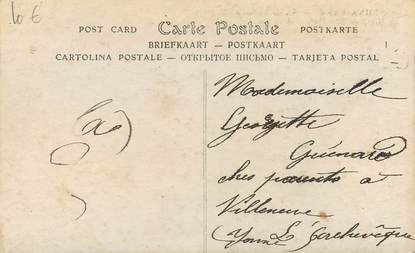 10 €
POST CARD Carte Postale POSTKARTE
BRIEFKAART - POSTKAART
CARTOLINA POSTALE - ОТКРЫТОЕ ПИСЬМО - TARJETA POSTAL
Mademoiselle
Georgette
Guénard
ches parents à
Villeneuve
L'Archevêque
Yonne